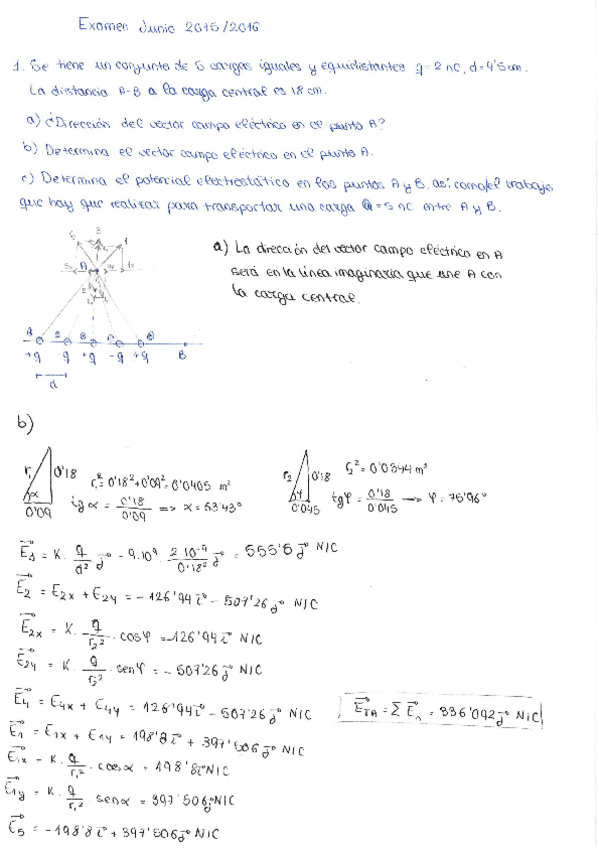 Examen Junio 2015/2016
1. Se tiene un conjunto de 5 cargas iguales y equidistantes q=2nC, d=4'5cm.
La distancia A-B a la carga central es 18 cm.
a) ¿Dirección del vector campo eléctrico en el punto A?
b) Determina el vector campo eléctrico en el punto A.
c) Determina el potencial electrostático en los puntos A y B, así como el trabajo
que hay que realizar para transportar una carga Q=5 nC entre A y B.
a) La dirección del vector campo eléctrico en A
será en la línea imaginaria que une A con
la carga central.
A
B
+q -q +q -q +q
d
b)
r₁ 0'18 r₁² = 0'18² + 0'09² = 0'0405 m²
α 0'09 tg α = 0'18/0'09 => α = 63'43°
r₂ 0'18 r₂² = 0'0344 m²
φ 0.045 tg φ = 0'18/0.045 → φ = 75'96°
E₃ = K · q/d² j = 9·10⁹ · 2·10⁻⁹/0'18² j = 555'5 j N/C
E₂ = E₂ₓ + E₂y = -126'94 i - 507'26 j N/C
E₂ₓ = K · -q/r₂² · cos φ = -126'94 i N/C
E₂y = K · q/r₂² · sen φ = -507'26 j N/C
E₄ = E₄ₓ + E₄y = 126'94 i - 507'26 j N/C
E_TA = Σ E_n = 336'092 j N/C
E₁ = E₁ₓ + E₁y = 198'8 i + 397'506 j N/C
E₁ₓ = K · q/r₁² · cos α = 198'8 i N/C
E₁y = K · q/r₁² · sen α = 397'506 j N/C
E₅ = -198'8 i + 397'506 j N/C